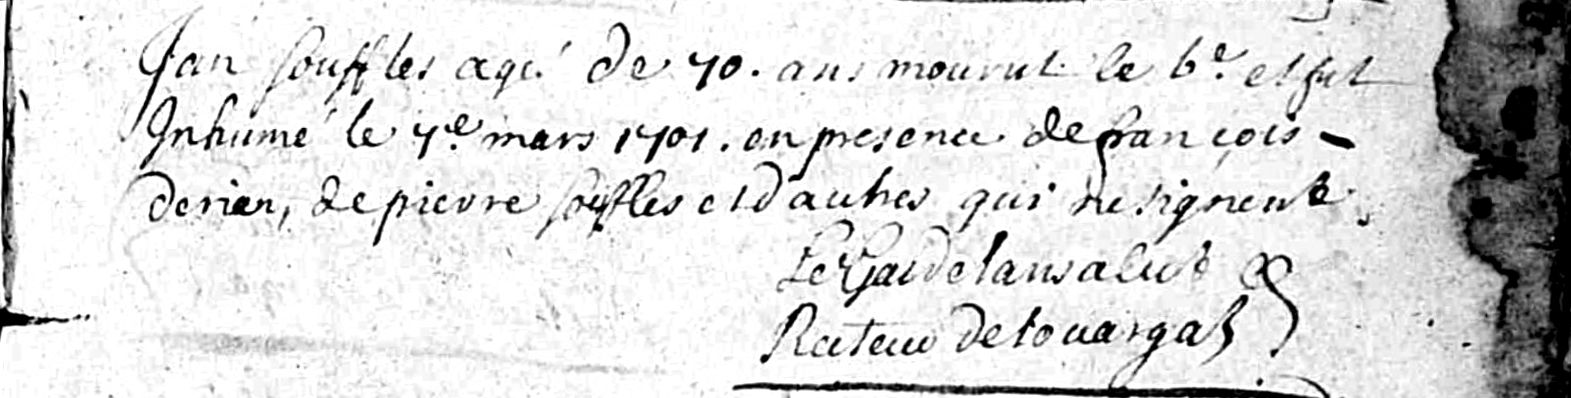 Jan souffles agé de 70. ans mourut le 6e et fut
Inhumé le 7e mars 1701. en presence de françois
derien, de pierre souffles et d'autres qui ne signent.
Le Gac de lansalut
Recteur de Louargat